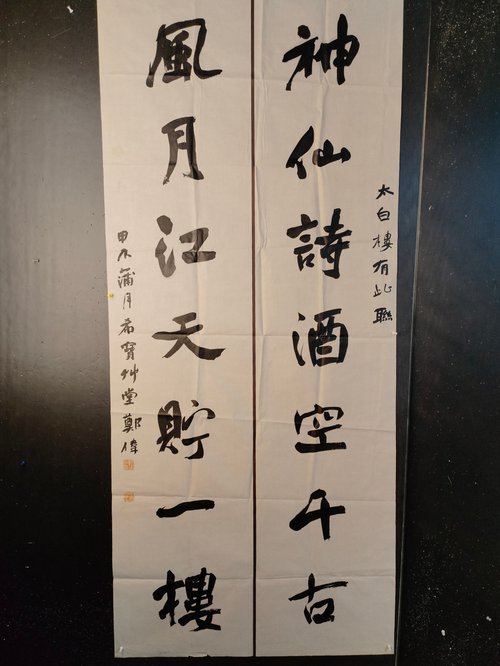 太白樓有此聯
神仙詩酒空千古
風月江天貯一樓
甲午蒲月希寶艸堂鄭偉